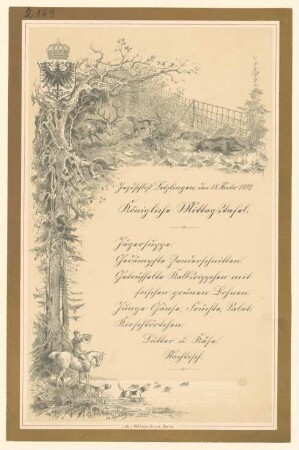 Jagdschloß Letzlingen, den
Königliche Mittagstafel.
Jägersuppe.
Gedämpfte Zanderschnitten.
Kalbsrippchen mit
frischen grünen Bohnen.
Junge Gänse, Früchte, Salat.
Kirschtörtchen.
Butter u. Käse.
Nachtisch.